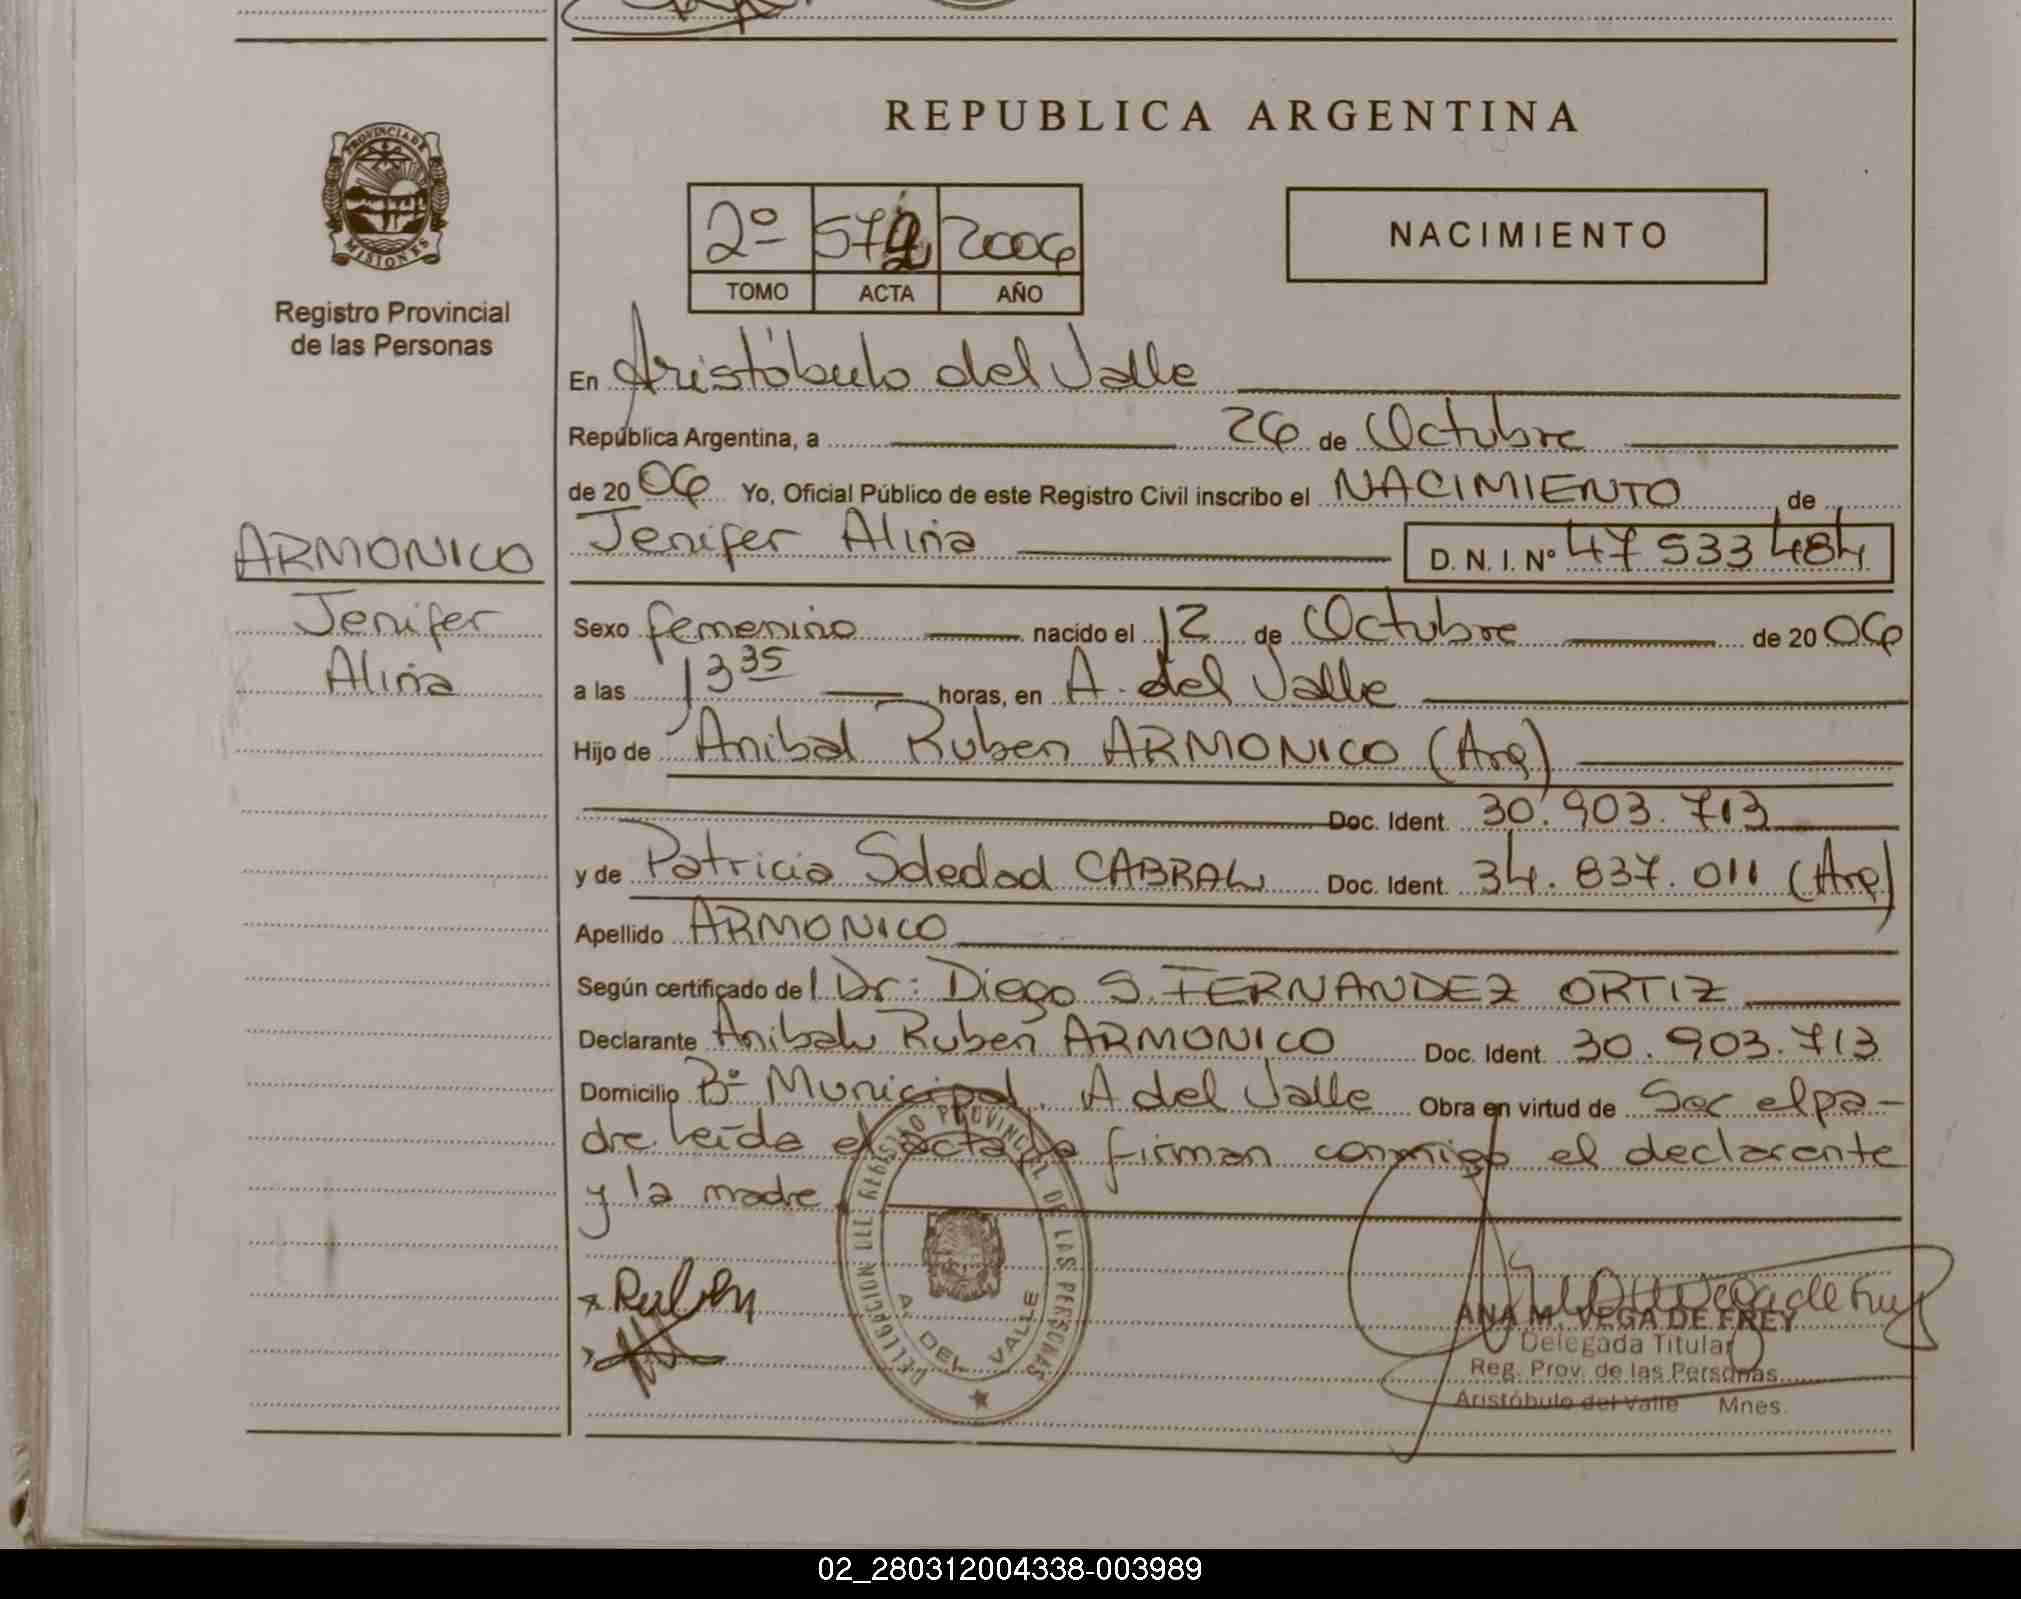 PROVINCIA DE
MISIONES
Registro Provincial
de las Personas
ARMONICO
Jenifer
Aliria
REPUBLICA ARGENTINA
2º 2006
TOMO ACTA AÑO
NACIMIENTO
En Aristóbulo del Valle
República Argentina, a 26 de Octubre
de 2006 Yo, Oficial Público de este Registro Civil inscribo el NACIMIENTO de
Jenifer Aliria D. N. I. Nº 47 533 484
Sexo femenino nacido el 12 de Octubre de 2006
a las 13 35 horas, en A. del Valle
Hijo de Anibal Ruben ARMONICO (Arg)
Doc. Ident. 30.903.713
y de Patricia Soledad CABRAL Doc. Ident. 34.837.011 (Arg)
Apellido ARMONICO
Según certificado del Dr: Diego S. FERNANDEZ ORTIZ
Declarante Anibal Ruben ARMONICO Doc. Ident. 30.903.713
Domicilio Bº Municipal. A del Valle Obra en virtud de Ser el pa-
dre. Leída el acta la firman conmigo el declarante
y la madre
Ruben
REGISTRO PROVINCIAL DE LAS PERSONAS
DELEGACION
A. DEL VALLE
ANA M. VEGA DE FREY
Delegada Titular
Reg. Prov. de las Personas
Aristóbulo del Valle Mnes.
02_280312004338-003989